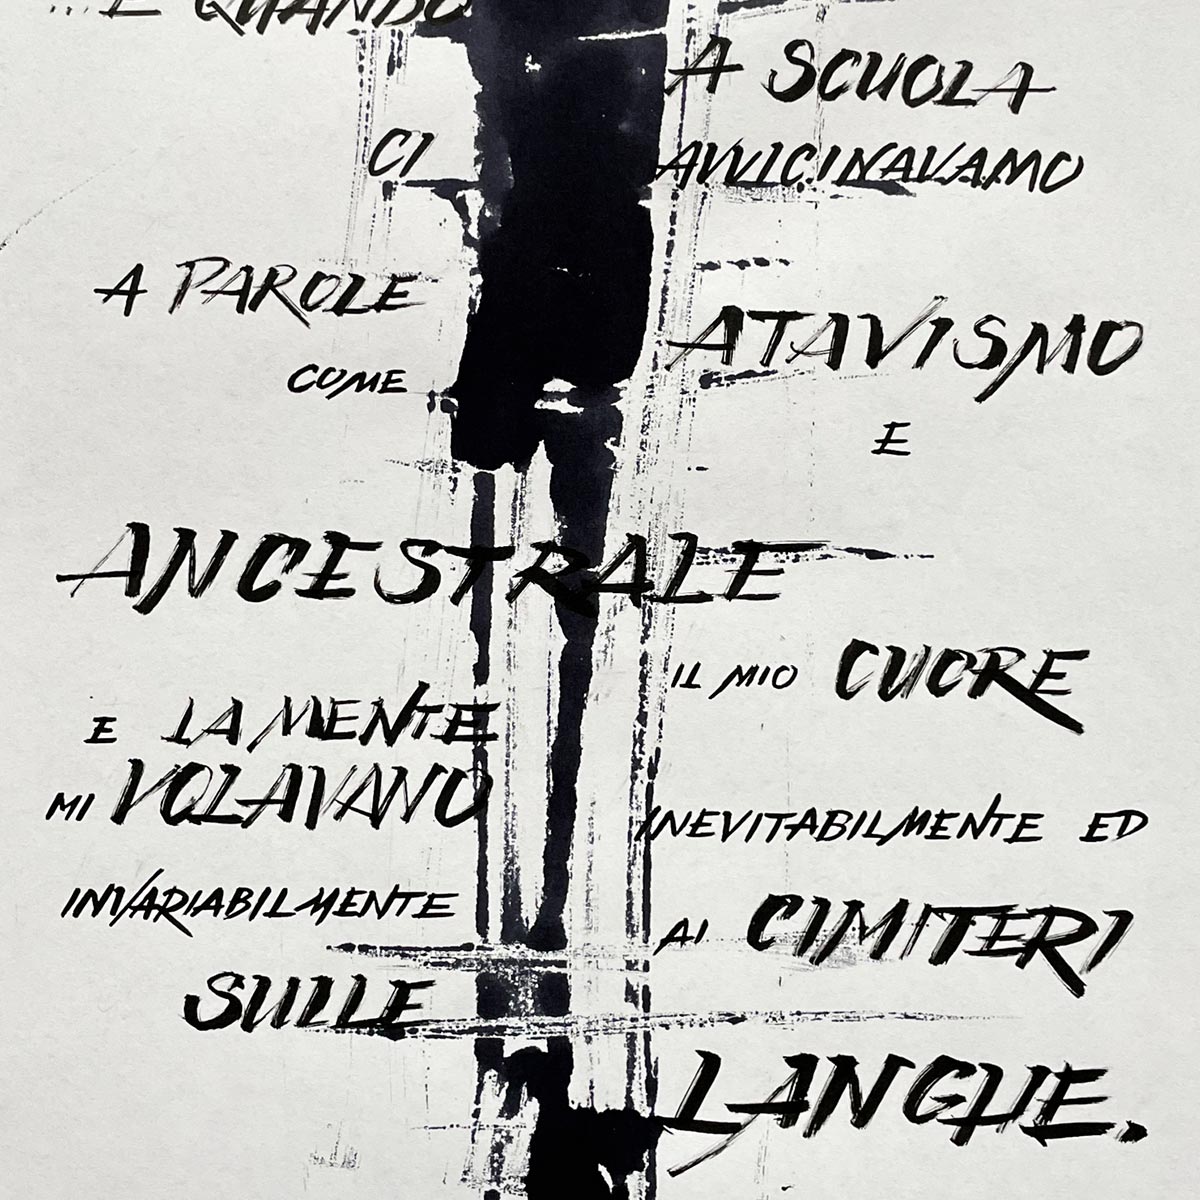 ...E QUANDO
A SCUOLA
CI AVVICINAVAMO
A PAROLE
COME ATAVISMO
E
ANCESTRALE
IL MIO CUORE
E LA MENTE
MI VOLAVANO
INEVITABILMENTE ED
INVARIABILMENTE
AI CIMITERI
SULLE
LANGHE.